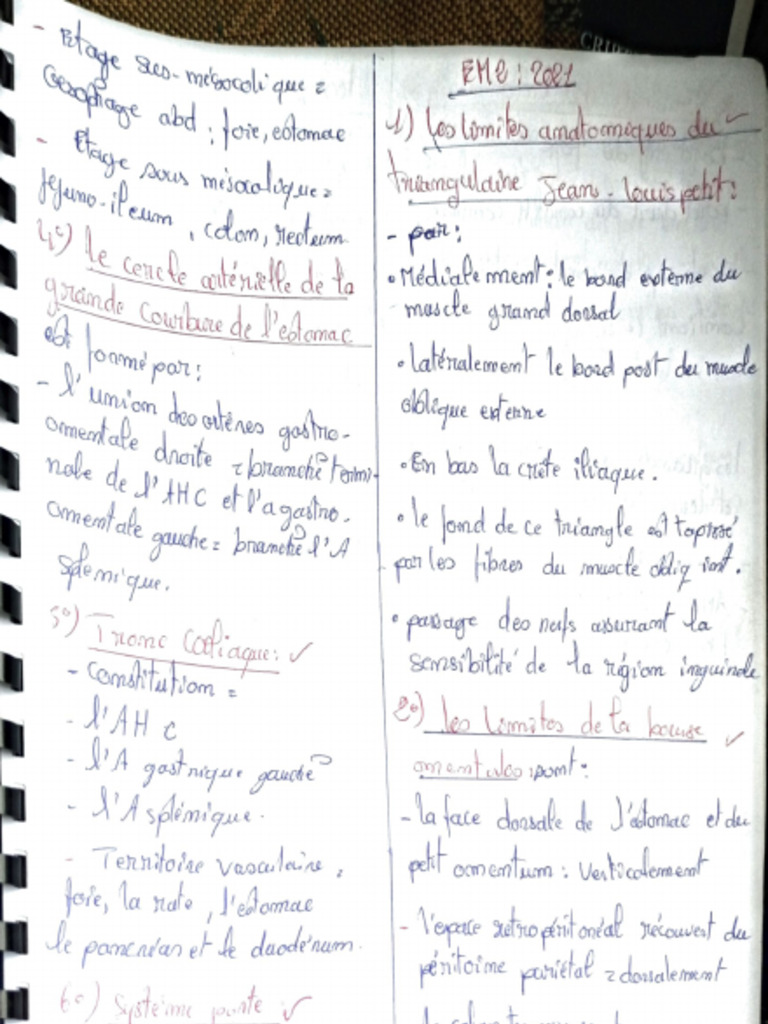 - Etage sus-mésocolique =
Oesophage abd, foie, estomac
- Etage sous mésocolique =
Jejuno-ileum, colon, rectum
4°) le cercle artérielle de la
grande Courbure de l'estomac
est formé par :
- l'union des artères gastro-
omentale droite = branche termi-
nale de l'AHC et l'a gastro-
omentale gauche = branche l'A
splénique.
5°) Tronc Coeliaque : ✓
- Constitution =
- l'AHC
- l'A gastrique gauche
- l'A splénique.
- Territoire vasculaire,
foie, la rate, l'estomac
le pancréas et le duodénum.
6°) Système porte ✓
2021
1) les limites anatomiques du ✓
triangulaire Jean-louis petit :
- par :
• Médialement : le bord externe du
muscle grand dorsal
• latéralement le bord post du muscle
oblique externe
• En bas la crête iliaque.
• le fond de ce triangle est
par les fibres du muscle obliq int.
• passage des nerfs assurant la
sensibilité de la région inguinale
2°) les limites de la bourse ✓
omentales sont :
- la face dorsale de l'estomac et du
petit omentum : Verticalement
- l'espace retropéritonéal récouvert du
péritoine pariétal = dorsalement